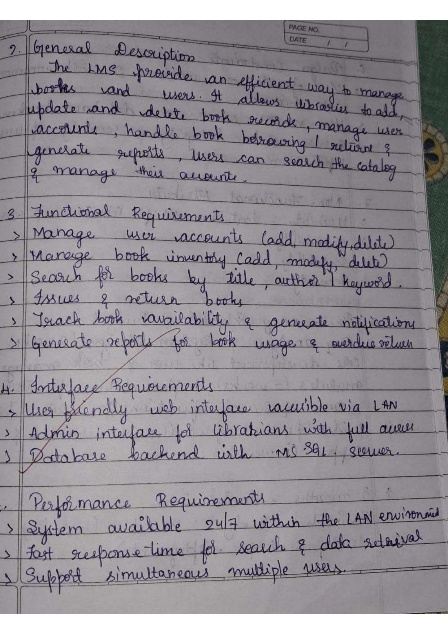 PAGE NO.
DATE / /
2. General Description
The LMS provide an efficient way to manage
books and users. It allows libraries to add,
update and delete book records, manage user
accounts, handle book borrowing / returns &
generate reports, users can search the catalog
& manage their accounts.
3. Functional Requirements
> Manage user accounts (add, modify, delete)
> Manage book inventory (add, modify, delete)
> Search for books by title, author / keyword.
> Issues & return books
> Track book availability & generate notifications
> Generate reports for book usage & overdue return
4. Interface Requirements
> User friendly web interface accessible via LAN
> Admin interface for librarians with full access
> Database backend with MS SQL server.
Performance Requirements
> System available 24/7 within the LAN environment
> Fast response-time for search & data retrieval
> Support simultaneous multiple users.